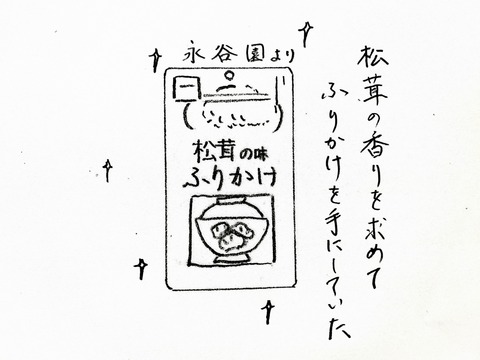 松茸の香りを求めて
ふりかけを手にしていた
永谷園より
松茸の味
ふりかけ